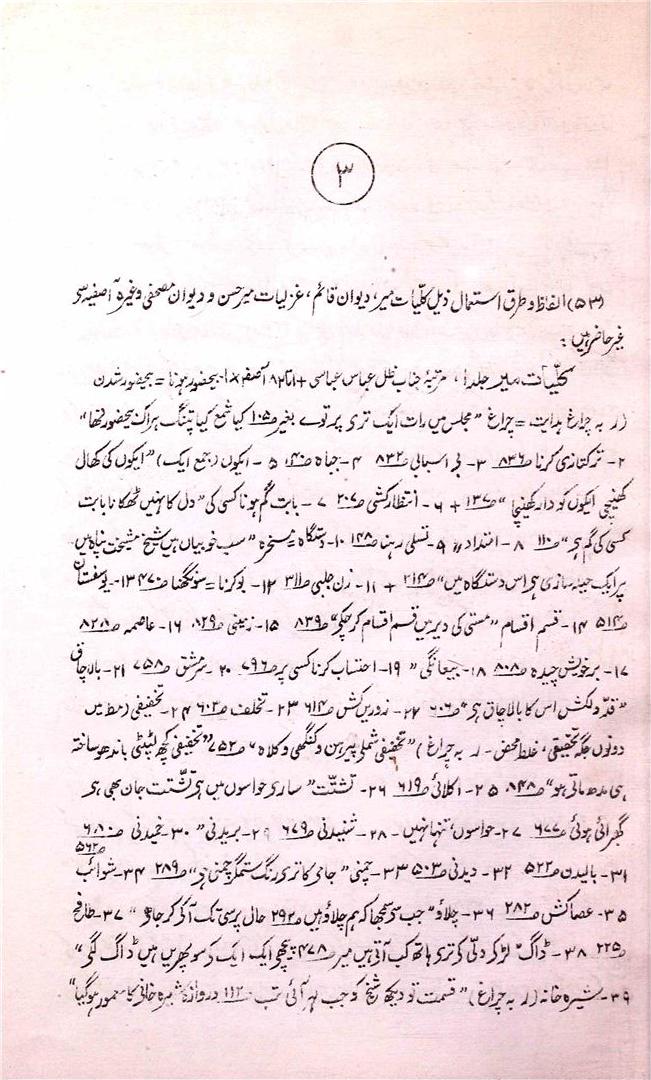 ۳
(۵۳) الفاظ و طرق استعمال ذیل کلّیات میر، دیوان قائم، غزلیات میر حسن و دیوان مصحفی وغیرہ آصفیہ سے
غیر حاضر ہیں:
کلیّات میر جلد ا، مرتبۂ جناب ظل عباس عباسی + ۱ تا ۸۲ آصفر × ۱۔ بحضور ہونا = بحضور شدن
ر بہ چراغ ہدایت = چراغ "مجلس میں رات ایک تری پرتوے بغیر ص۱۰۵ کیا شمع کیا پتنگ ہر اک بحضور تھا"
۲۔ ترکتازی کرنا ص۸۳۶ ۳۔ بے اسبابی ص۸۳۲ ۴۔ جباہ ص۱۴۰ ۵۔ ایکوں (جمع ایک) "ایکوں کی کھال
کھنیچی ایکوں کو دار کھنیچا" ص۱۳۷ + ۶۔ انتظار کشی ص۲۰۷ ۷۔ بابت گم ہونا کسی کی "دل کا نہیں ٹھکانا بابت
کسی کی گم ہے" ص۱۱۰ ۸۔ امتداد " ۹۔ تسلی رہنا ص۱۴۸ ۱۰۔ دستگاہ = مسخرہ "سب خوبیاں ہیں شیخ مشیخت پناہ میں
پر ایک حیلہ سازی ہے اس دستگاہ میں" ص۲۱۴ + ۱۱۔ زن جلبی ص۳۱۱ ۱۲۔ بو کرنا = سونگھنا ص۴۷۰ ۱۳۔ یوسفستان
ص۵۱۴ ۱۴۔ قسم اقسام "مستی کی دیر میں قسم اقسام کر چکے" ص۸۳۹ ۱۵۔ زمینی ص۸۲۹ ۱۶۔ عاصمہ ص۸۲۸
۱۷۔ بر خویش چیدہ ص۸۰۸ ۱۸۔ " ۱۹۔ احتساب کرنا کسی پر ص۷۹۶ ۲۰۔ سر مشق ص۷۵۸ ۲۱۔ بالا چاق
"قد دلکش اس کا بالا چاق ہے" ص۶۰۶ ۲۲۔ زور کش ص۶۱۴ ۲۳۔ تخلف ص۶۰۳ ۲۴۔ تخفیفی (مط میں
دونوں جگہ تحقیقی، غلط محض۔ ر بہ چراغ) "تخفیفی شملے پیرہن و کنگھی و کلاہ" ص۷۵۲ "تخفیفی کچھ لپیٹی باندھو ساختہ
ہی مدھ ماتی ہو" ص۸۴۸ ۲۵۔ اکلائی ص۶۱۹ ۲۶۔ تشتّت "ساری حواسوں میں ہے تشتّت جان بھی ہے
گھبرائی ہوئی ص۶۷۷ ۲۷۔ حواسوں، تنہا نہیں ۲۸۔ شنیدنی ص۶۷۹ ۲۹۔ بریدنی " ۳۰۔ خمیدنی ص۶۸۰
ص۵۶۲
۳۱۔ بالیدن ص۵۲۲ ۳۲۔ دیدنی ص۵۰۳ ۳۳۔ چمنی "جامی کا تری رنگ ستمگر چمنی ہے" ص۲۸۹ ۳۴۔ شوائب
۳۵۔ عصا کش ص۲۸۲ ۳۶۔ چلاؤ "جب سے سمجھا کہ ہم چلاؤ ہیں ص۲۹۲ حال پرسی تک آ کے کر جاؤ" ۳۷۔ طافح
ص۲۲۵ ۳۸۔ ڈاگ "لڑکے دلی کے تری ہاتھ کب آتے ہیں میر ص۴۷۸ پیچھے ایک ایک کے سو پھریں ہیں ڈاگ لگے"
۳۹۔ شیرہ خانہ (ر بہ چراغ) "قسمت تو دیکھ شیخ کو جب لہر آئی تب ص۱۱۲ دروازہ شیرہ خانے کا معمور ہو گیا"